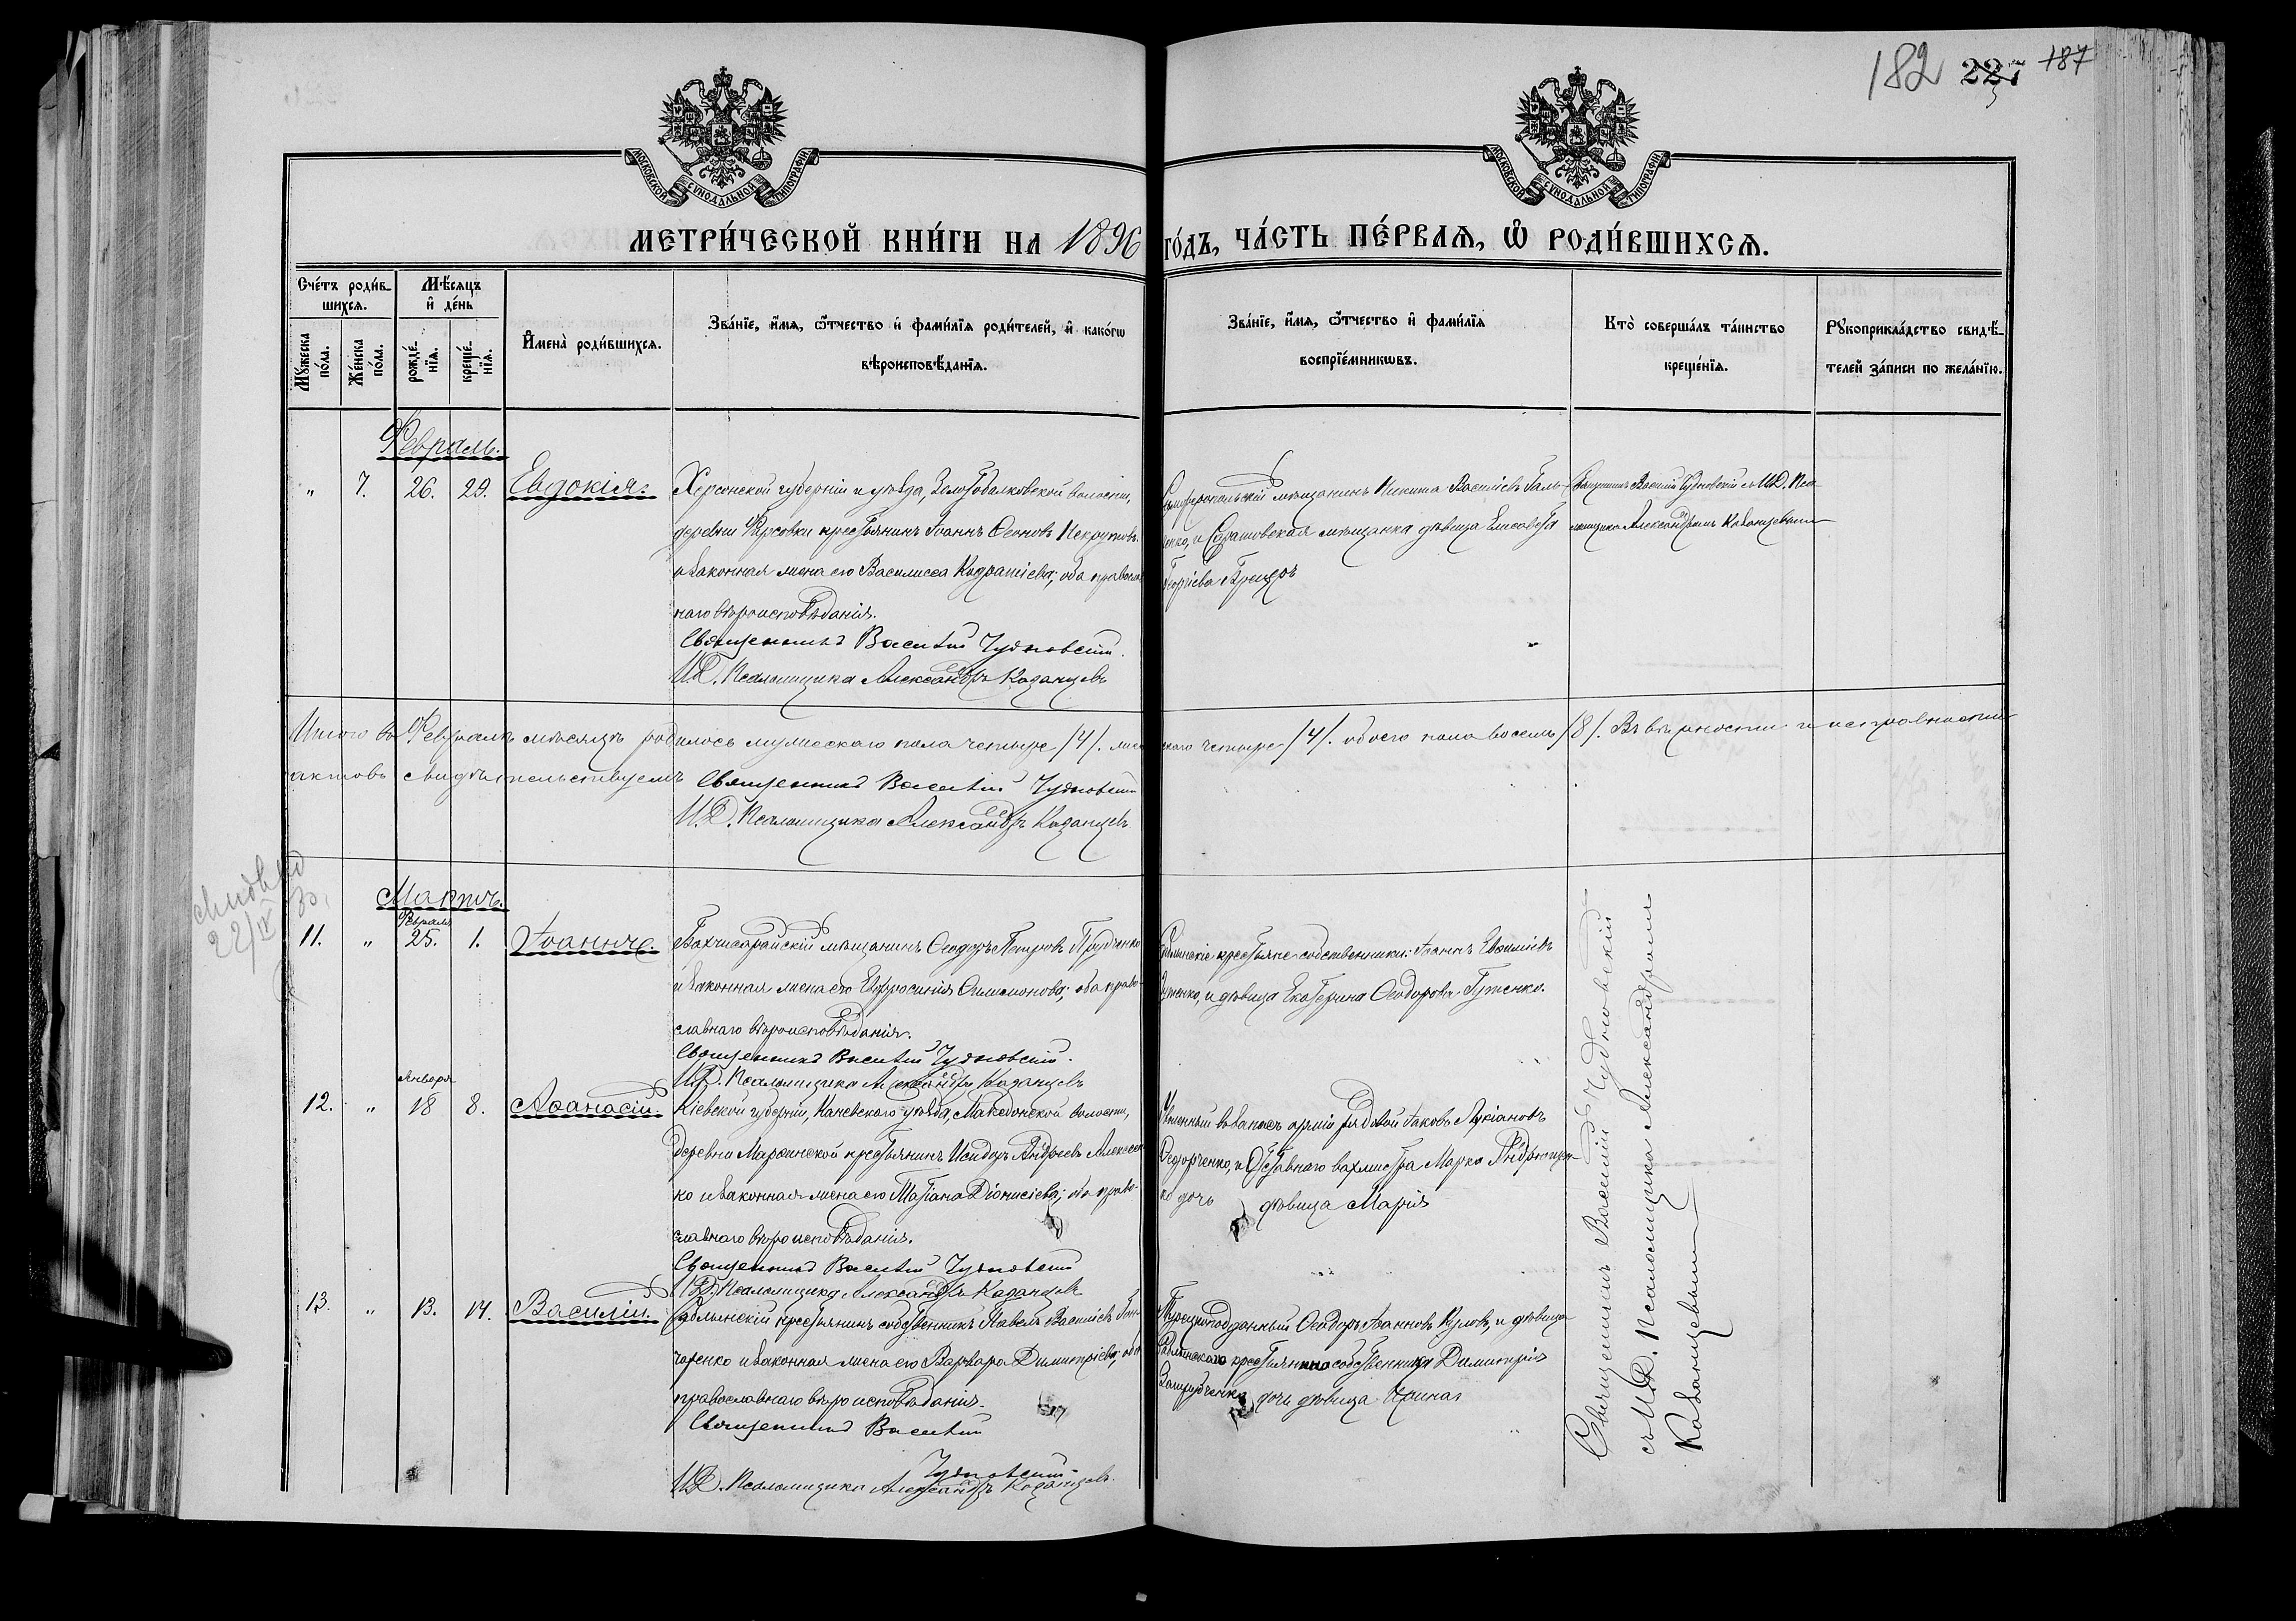 182 227 187
МОСКОВСКОЙ СУНОДАЛЬНОЙ ТИПОГРАФІИ
МОСКОВСКОЙ СУНОДАЛЬНОЙ ТИПОГРАФІИ
МЕТРИ́ЧЕСКОЙ КНИ́ГИ НА 1896 ГО́ДЪ, ЧА́СТЬ ПЕ́РВАѦ, Ѽ РОДИ́ВШИХСѦ.
Сче́тъ роди́в-
шихсѧ.
Мѣ́сѧцъ
и҆ де́нь
Мꙋ́жеска
по́ла.
Же́нска
по́ла.
рожде́-
нїѧ.
креще́-
нїѧ.
И҆мена̀ роди́вшихсѧ.
Зва́нїе, и҆́мѧ, ѻ҆́тчество и҆ фами́лїѧ роди́телей, и҆ како́гѡ
вѣроисповѣ́данїѧ.
Зва́нїе, и҆́мѧ, ѻ҆́тчество и҆ фами́лїѧ
воспрїе́мникѡвъ.
Кто̀ соверша́лъ та́инство
креще́нїѧ.
Рꙋкоприкла́дство свидѣ́-
телей за́писи по жела́нїю.
Февраль.
" 7. 26. 29. Евдокія.
Херсонской губерніи и уѣзда, волости,
деревни крестьянинъ Іоаннъ Леоновъ Некрутовъ
и законная жена его Василисса Кодратіева; оба правос
наго вѣроисповѣданія.
Священникъ Василій Чудновскій.
И.Д. Псаломщика Александръ Казанцевъ
Симферопольскій мѣщанинъ Никита Васильевъ Галь-
енко, и Саратовская мѣщанка дѣвица Елисавета
Георгіева
Священникъ Василій Чудновскій съ И.Д. Пса-
ломщика Александромъ Казанцевымъ
Итого въ Февралѣ мѣсяцѣ родилось мужескаго пола четыре /4/. женскаго четыре /4/. обоего пола восемь /8/. Въ вѣрности и исправности
актовъ свидѣтельствуемъ Священникъ Василій Чудновскій
И.Д. Псаломщика Александръ Казанцевъ
22/IV 30
Мартъ.
Февраля
11. " 25. 1. Іоаннъ.
Бахчисарайскій мѣщанинъ Ѳеодоръ Петровъ Прудченко
и законная жена его Евфросинія Симеонова; оба право-
славнаго вѣроисповѣданія.
Священникъ Василій Чудновскій.
И.Д. Псаломщика Александръ Казанцевъ
крестьяне собственники: Іоаннъ Евѳиміевъ
и дѣвица Екатерина Ѳеодорова Гутенко.
Января
12. " 18 8. Аѳанасій.
Кіевской губерніи, Каневскаго уѣзда, Македонской волости,
деревни Марѳинской крестьянинъ Исидоръ Андреевъ Алексеен
ко и законная жена его Татіана Діонисіева; оба право-
славнаго вѣроисповѣданія.
Священникъ Василій Чудновскій
И.Д. Псаломщика Александръ Казанцевъ
Уволенный въ запасъ арміи рядовой Іаковъ Лукіановъ
Федорченко, и Отставнаго вахмистра Марка Андрющен-
ко дочь дѣвица Марія
13. " 13. 14. Василій.
Саблынскій крестьянинъ собственникъ Павелъ Василіевъ Гон-
чаренко и законная жена его Варвара Димитріева; оба
православнаго вѣроисповѣданія.
Священникъ Василій
Чудновскій
И.Д. Псаломщика Александръ Казанцевъ.
Турецкоподданный Ѳеодоръ Іоанновъ Куловъ, и дѣвица
Саблынскаго крестьянина собственника Димитрія
дочь дѣвица Ирина
Священникъ Василій Чудновскій
съ И.Д. Псаломщика Александромъ
Казанцевымъ